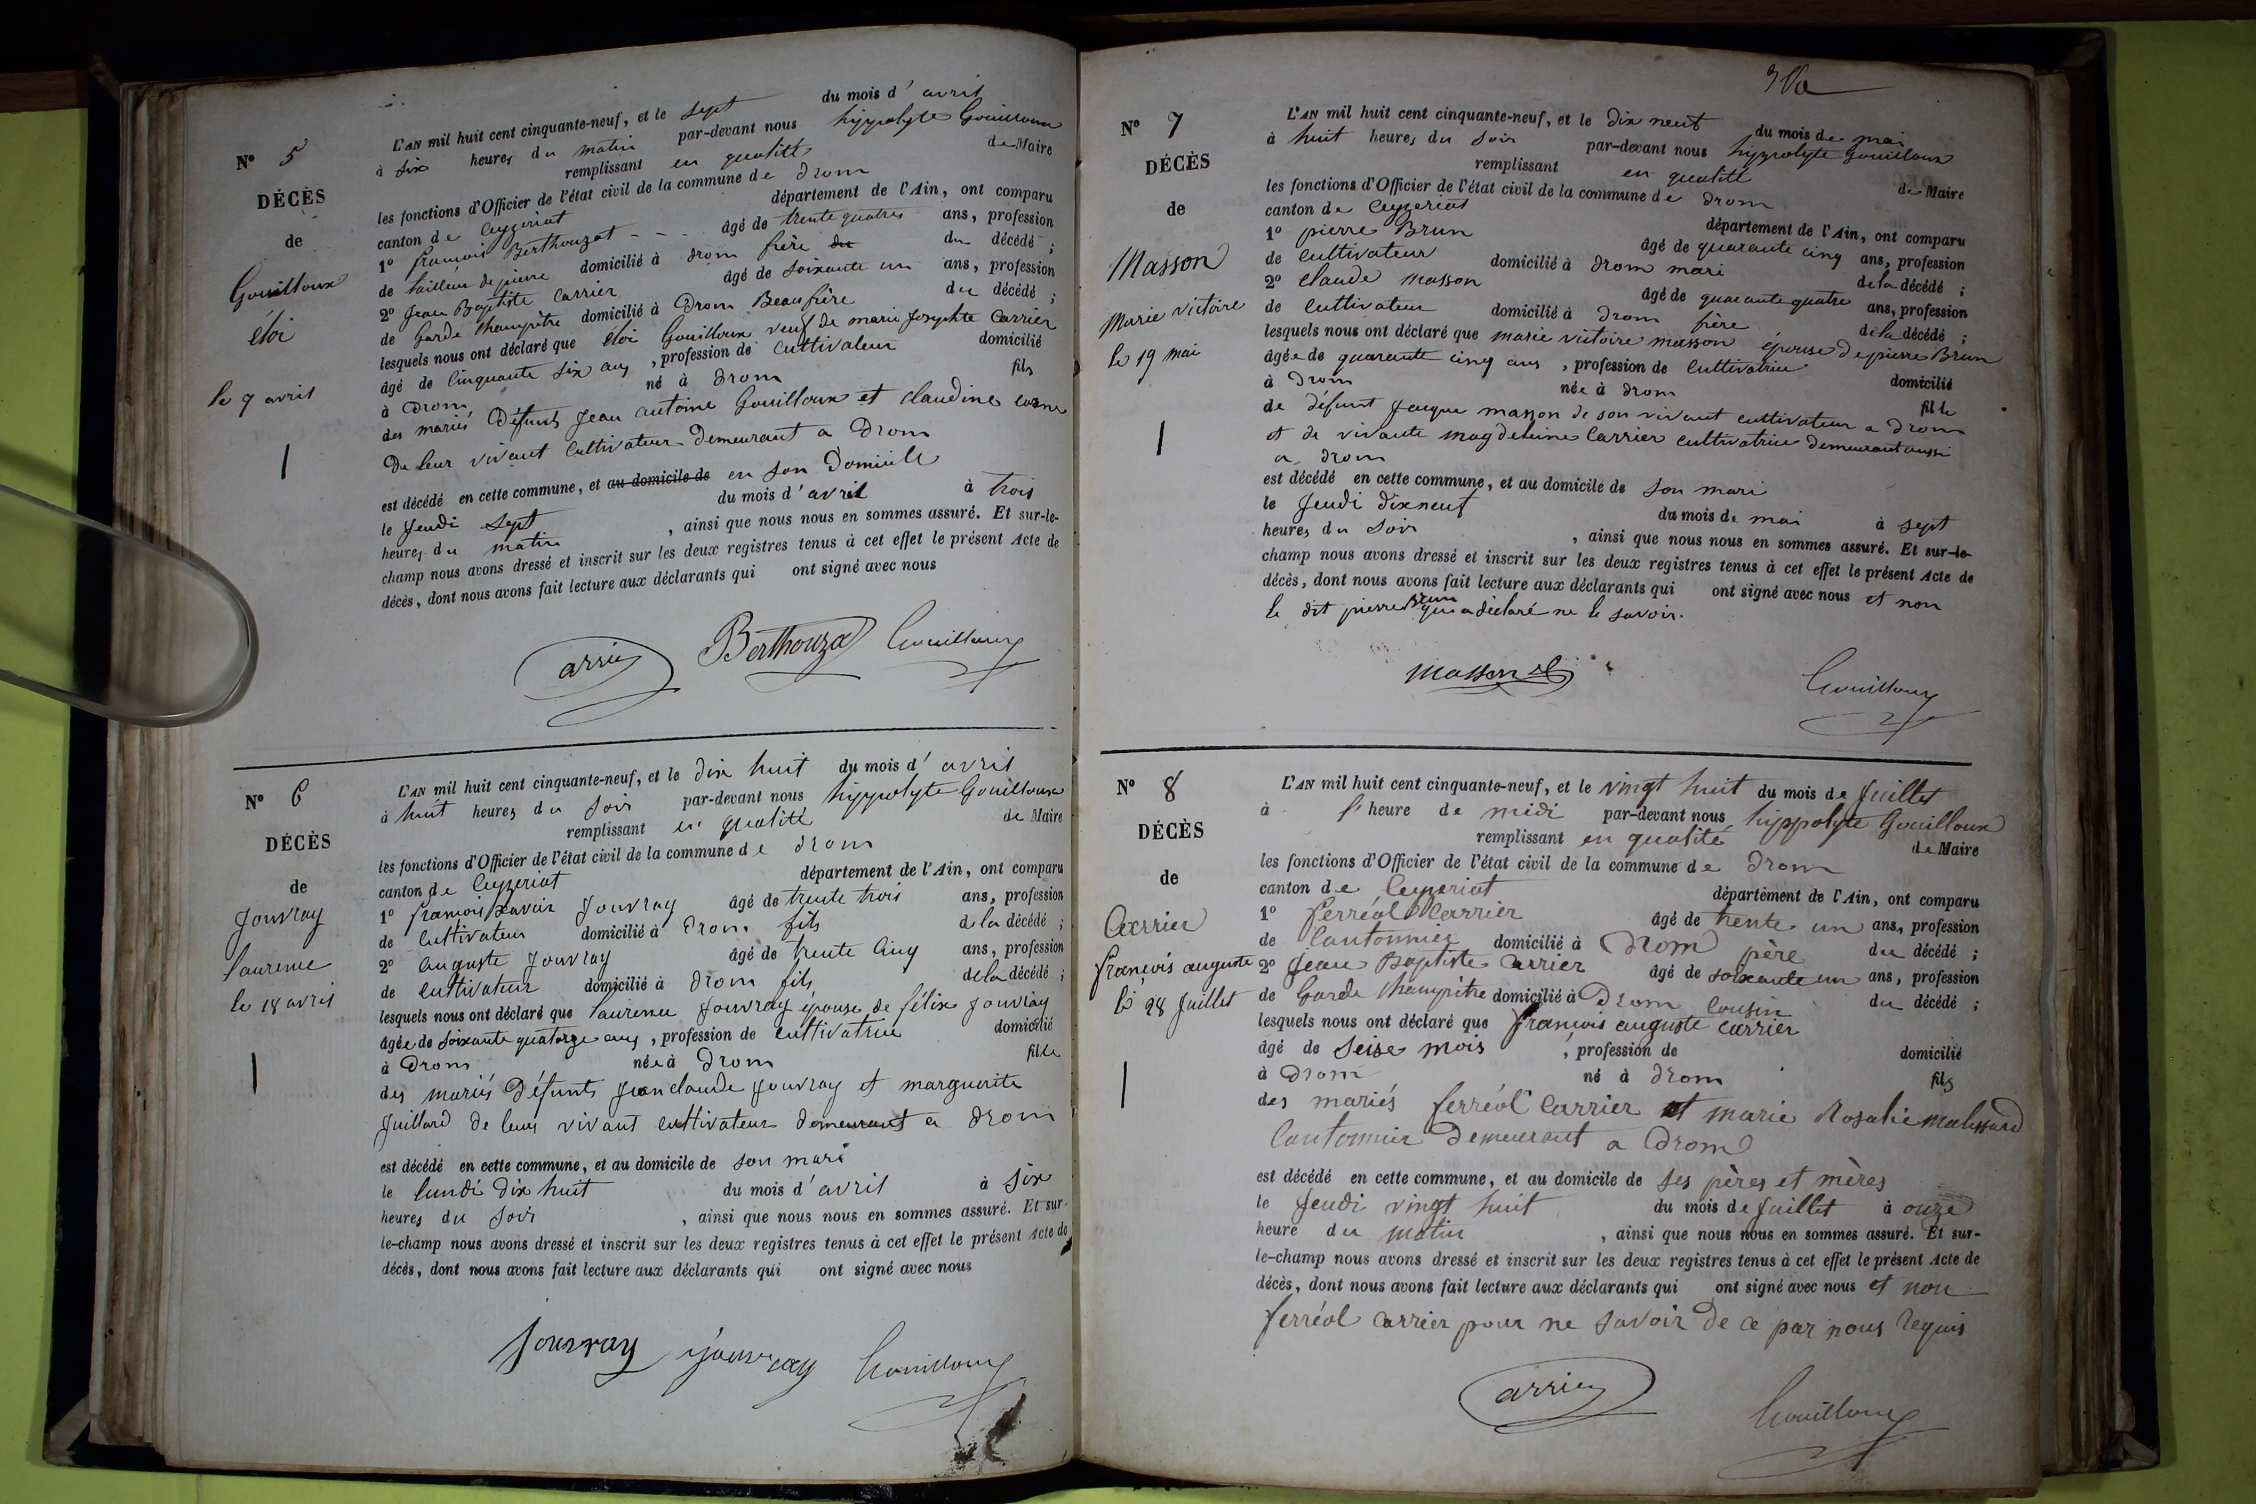 N° 5
DÉCÈS
de
Gouilloux
éloi
le 7 avril
L'AN mil huit cent cinquante-neuf, et le sept du mois d'avril
à six heures du matin par-devant nous hyppolyte Gouilloux
remplissant en qualité de Maire
les fonctions d'Officier de l'état civil de la commune de Drom
canton de Ceyzeriat département de l'Ain, ont comparu
1° françois Berthouzat âgé de trente quatres ans, profession
de tailleur de pierre domicilié à Drom frère du du décédé ;
2° Jean Baptiste Carrier âgé de soixante un ans, profession
de Garde Champêtre domicilié à Drom Beaufrère du décédé ;
lesquels nous ont déclaré que éloi Gouilloux veuf de marie Josephte Carrier
âgé de Cinquante six ans, profession de Cultivateur domicilié
à Drom né à Drom fils
des mariés Défunts Jean antoine Gouilloux et claudine
De leur vivant Cultivateur Demeurant a Drom
est décédé en cette commune, et au domicile de en son Domicile
le Jeudi sept du mois d'avril à trois
heures du matin, ainsi que nous nous en sommes assuré. Et sur-le-
champ nous avons dressé et inscrit sur les deux registres tenus à cet effet le présent Acte de
décès, dont nous avons fait lecture aux déclarants qui ont signé avec nous
arrier Berthouza Gouilloux
N° 6
DÉCÈS
de
Jouvray
laurence
le 18 avril
L'AN mil huit cent cinquante-neuf, et le dix huit du mois d'avril
à huit heures du soir par-devant nous hyppolyte Gouilloux
remplissant en qualité de Maire
les fonctions d'Officier de l'état civil de la commune de Drom
canton de Ceyzeriat département de l'Ain, ont comparu
1° françois xavier Jouvray âgé de trente trois ans, profession
de Cultivateur domicilié à Drom fils de la décédé ;
2° auguste Jouvray âgé de trente Cinq ans, profession
de Cultivateur domicilié à Drom fils de la décédé ;
lesquels nous ont déclaré que laurence Jouvray épouse de félix Jouvray
âgée de soixante quatorze ans, profession de Cultivatrice domicilié
à Drom née à Drom fille
des mariés Défunts Jean claude Jouvray et marguerite
Juillard de leur vivant cultivateur demeurant a Drom
est décédé en cette commune, et au domicile de son mari
le lundi dix huit du mois d'avril à six
heures du soir, ainsi que nous nous en sommes assuré. Et sur-
le-champ nous avons dressé et inscrit sur les deux registres tenus à cet effet le présent Acte de
décès, dont nous avons fait lecture aux déclarants qui ont signé avec nous
Jouvray Jouvray Gouilloux
N° 7
DÉCÈS
de
Masson
Marie victoire
le 19 mai
L'AN mil huit cent cinquante-neuf, et le dix neuf du mois de mai
à huit heures du soir par-devant nous hyppolyte Gouilloux
remplissant en qualité de Maire
les fonctions d'Officier de l'état civil de la commune de Drom
canton de Ceyzeriat département de l'Ain, ont comparu
1° pierre Brun âgé de quarante cinq ans, profession
de Cultivateur domicilié à Drom mari de la décédé ;
2° claude masson âgé de quarante quatre ans, profession
de Cultivateur domicilié à Drom frère de la décédé ;
lesquels nous ont déclaré que marie victoire masson épouse de pierre Brun
âgée de quarante cinq ans, profession de Cultivatrice domicilié
à Drom née à Drom fille
de défunt Jacque masson de son vivant cultivateur a Drom
et de vivante magdeleine Carrier cultivatrice demeurant aussi
a Drom
est décédé en cette commune, et au domicile de son mari
le Jeudi dixneuf du mois de mai à sept
heures du soir, ainsi que nous nous en sommes assuré. Et sur-le-
champ nous avons dressé et inscrit sur les deux registres tenus à cet effet le présent Acte de
décès, dont nous avons fait lecture aux déclarants qui ont signé avec nous et non
le dit pierre Brun qui a déclaré ne le savoir.
Masson Gouilloux
N° 8
DÉCÈS
de
Carrier
françois auguste
le 28 Juillet
L'AN mil huit cent cinquante-neuf, et le vingt huit du mois de Juillet
à l'heure de midi par-devant nous hyppolyte Gouilloux
remplissant en qualité de Maire
les fonctions d'Officier de l'état civil de la commune de Drom
canton de Ceyzeriat département de l'Ain, ont comparu
1° ferréol Carrier âgé de trente un ans, profession
de Cantonnier domicilié à Drom père du décédé ;
2° Jean Baptiste Carrier âgé de soixante un ans, profession
de Garde Champêtre domicilié à Drom Cousin du décédé ;
lesquels nous ont déclaré que françois auguste carrier
âgé de seise mois, profession de domicilié
à Drom né à Drom fils
des mariés ferréol Carrier et marie Rosalie
Cantonnier Demeurant a Drom
est décédé en cette commune, et au domicile de ses pères et mères
le Jeudi vingt huit du mois de Juillet à onze
heure du matin, ainsi que nous nous en sommes assuré. Et sur-
le-champ nous avons dressé et inscrit sur les deux registres tenus à cet effet le présent Acte de
décès, dont nous avons fait lecture aux déclarants qui ont signé avec nous et non
ferréol carrier pour ne savoir De ce par nous requis
arrier Gouilloux